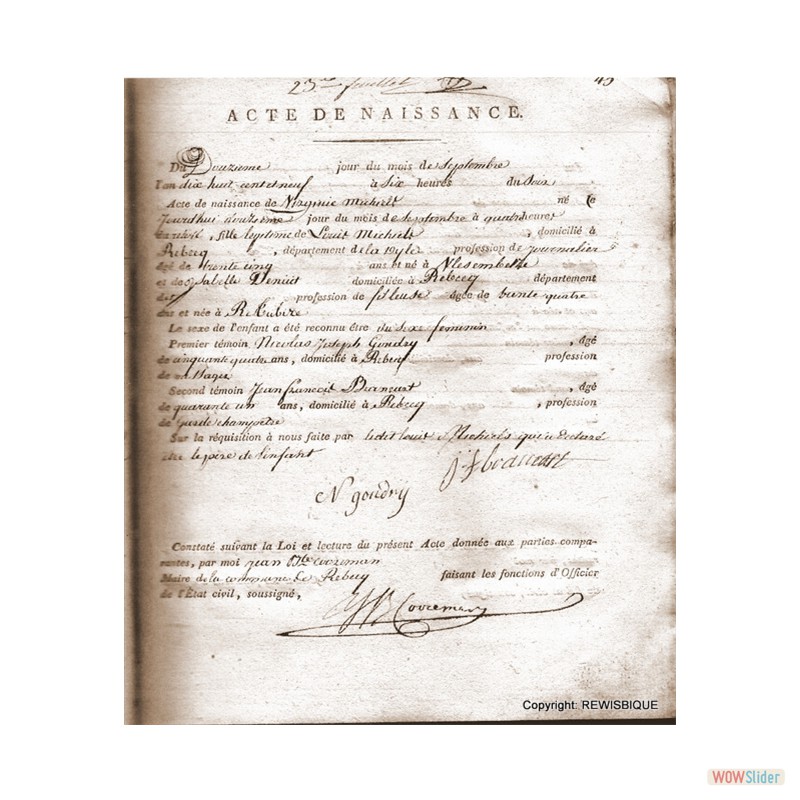 23me feuillet 45
ACTE DE NAISSANCE.
Du Douzieme jour du mois de Septembre
l'an dix huit cent et neuf à Six heures du Soir
Acte de naissance de Virginie Michiels né le
jourdhui douzieme jour du mois de Septembre à quatre heures
, fille legitime de Louis Michiels , domicilié à
Rebecq , département de la Dyle profession de journalier
âgé de trente cinq ans et né à
et de Isabelle Deniut domiciliée à Rebecq département
dit profession de fileuse âgée de trente quatre
ans et née à
Le sexe de l'enfant a été reconnu être du sexe feminin
Premier témoin Nicolas Joseph Gondry , âgé
de cinquante quatre ans, domicilié à Rebecq profession
de
Second témoin Jean francois Brancart , âgé
de quarante un ans, domicilié à Rebecq , profession
de Garde champetre
Sur la réquisition à nous faite par ledit louis Michiels qui a declaré
etre le pere de l'enfant
j f brancart
N gondry
Constaté suivant la Loi et lecture du présent Acte donnée aux parties compa-
rantes, par moi jean Bte coreman
Maire de la commune de Rebecq faisant les fonctions d'Officier
de l'État civil, soussigné,
JB Coreman
Copyright: REWISBIQUE
WOWSlider